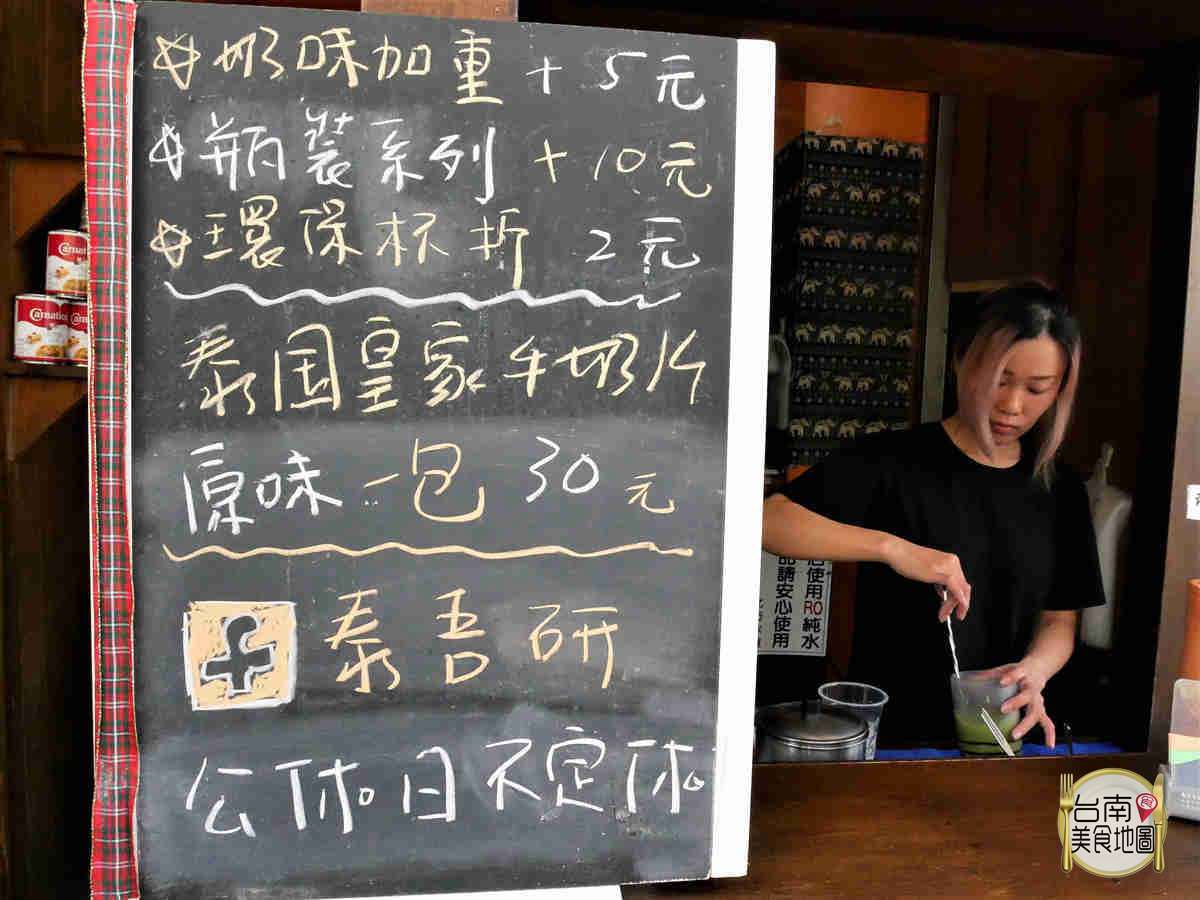 ☆奶味加重+5元
☆瓶裝系列+10元
☆環保杯折2元
泰国皇家牛奶片
原味一包30元
泰吾研
公休日不定休
Carnation
使用RO純水
品請安心使用
台南
食
美食地圖